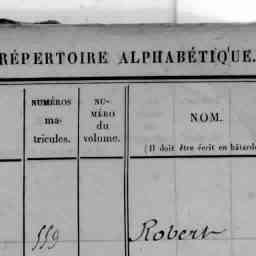 RÉPERTOIRE ALPHABÉTIQUE.
NUMÉROS
ma-
tricules.
NU-
MÉRO
du
volume.
NOM.
(Il doit être écrit en bâtarde
559 Robert